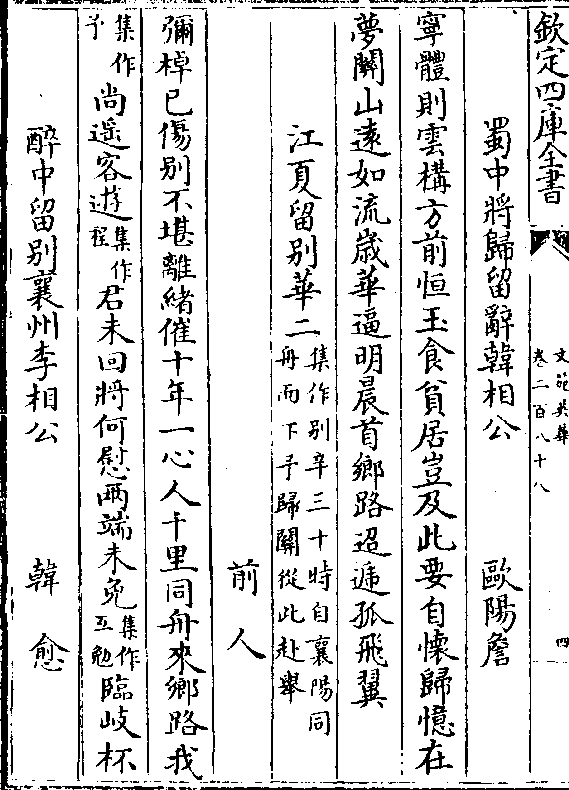 欽定四庫全書
文苑英華
卷二百八十八
四
蜀中將歸留辭韓相公　歐陽詹
寧體則雲構方前恒玉食貧居豈及此要自懷歸憶在
夢關山遠如流歲華逼明晨首鄉路迢遞孤飛翼
江夏留别華二
集作别辛三十時自襄陽同
舟而下予歸關從此赴舉
前人
彌棹已傷别不堪離緒催十年一心人千里同舟來鄉路我
集作
予
尚遥客遊
集作
程
君未回將何慰兩端未免
集作
互勉
臨岐杯
醉中留别襄州李相公　韓愈